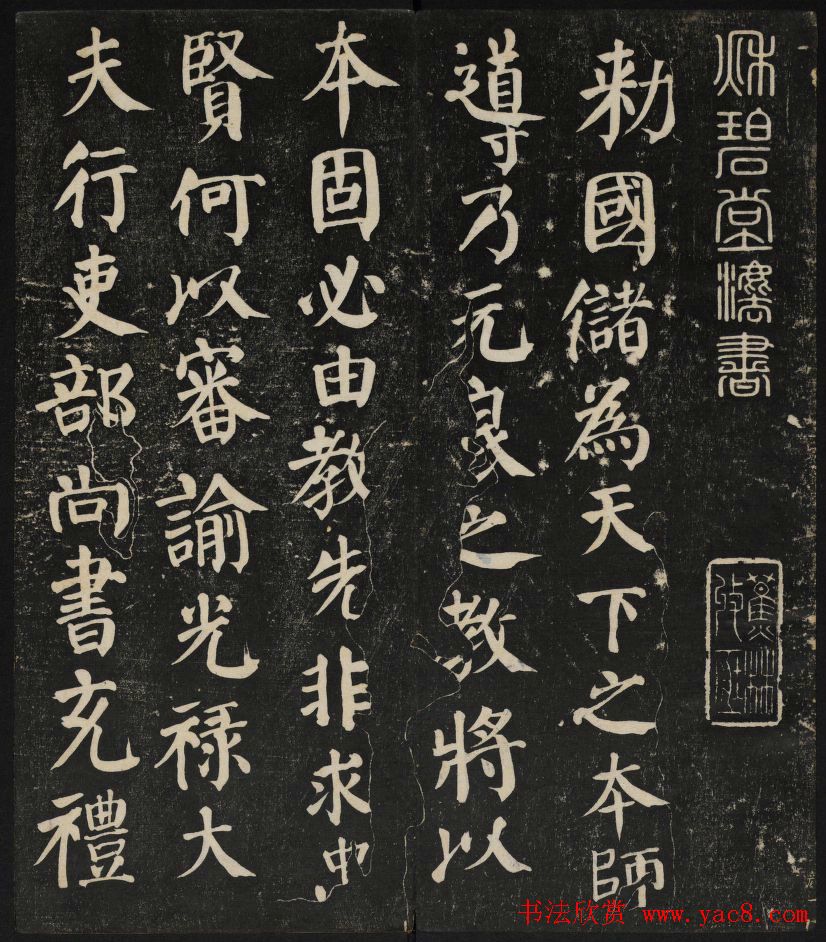 秌碧堂灋書
勅國儲為天下之本師
導乃元良之教將以
本固必由教先非求中
賢何以審諭光禄大
夫行吏部尚書充禮
书法欣赏 www.yac8.com